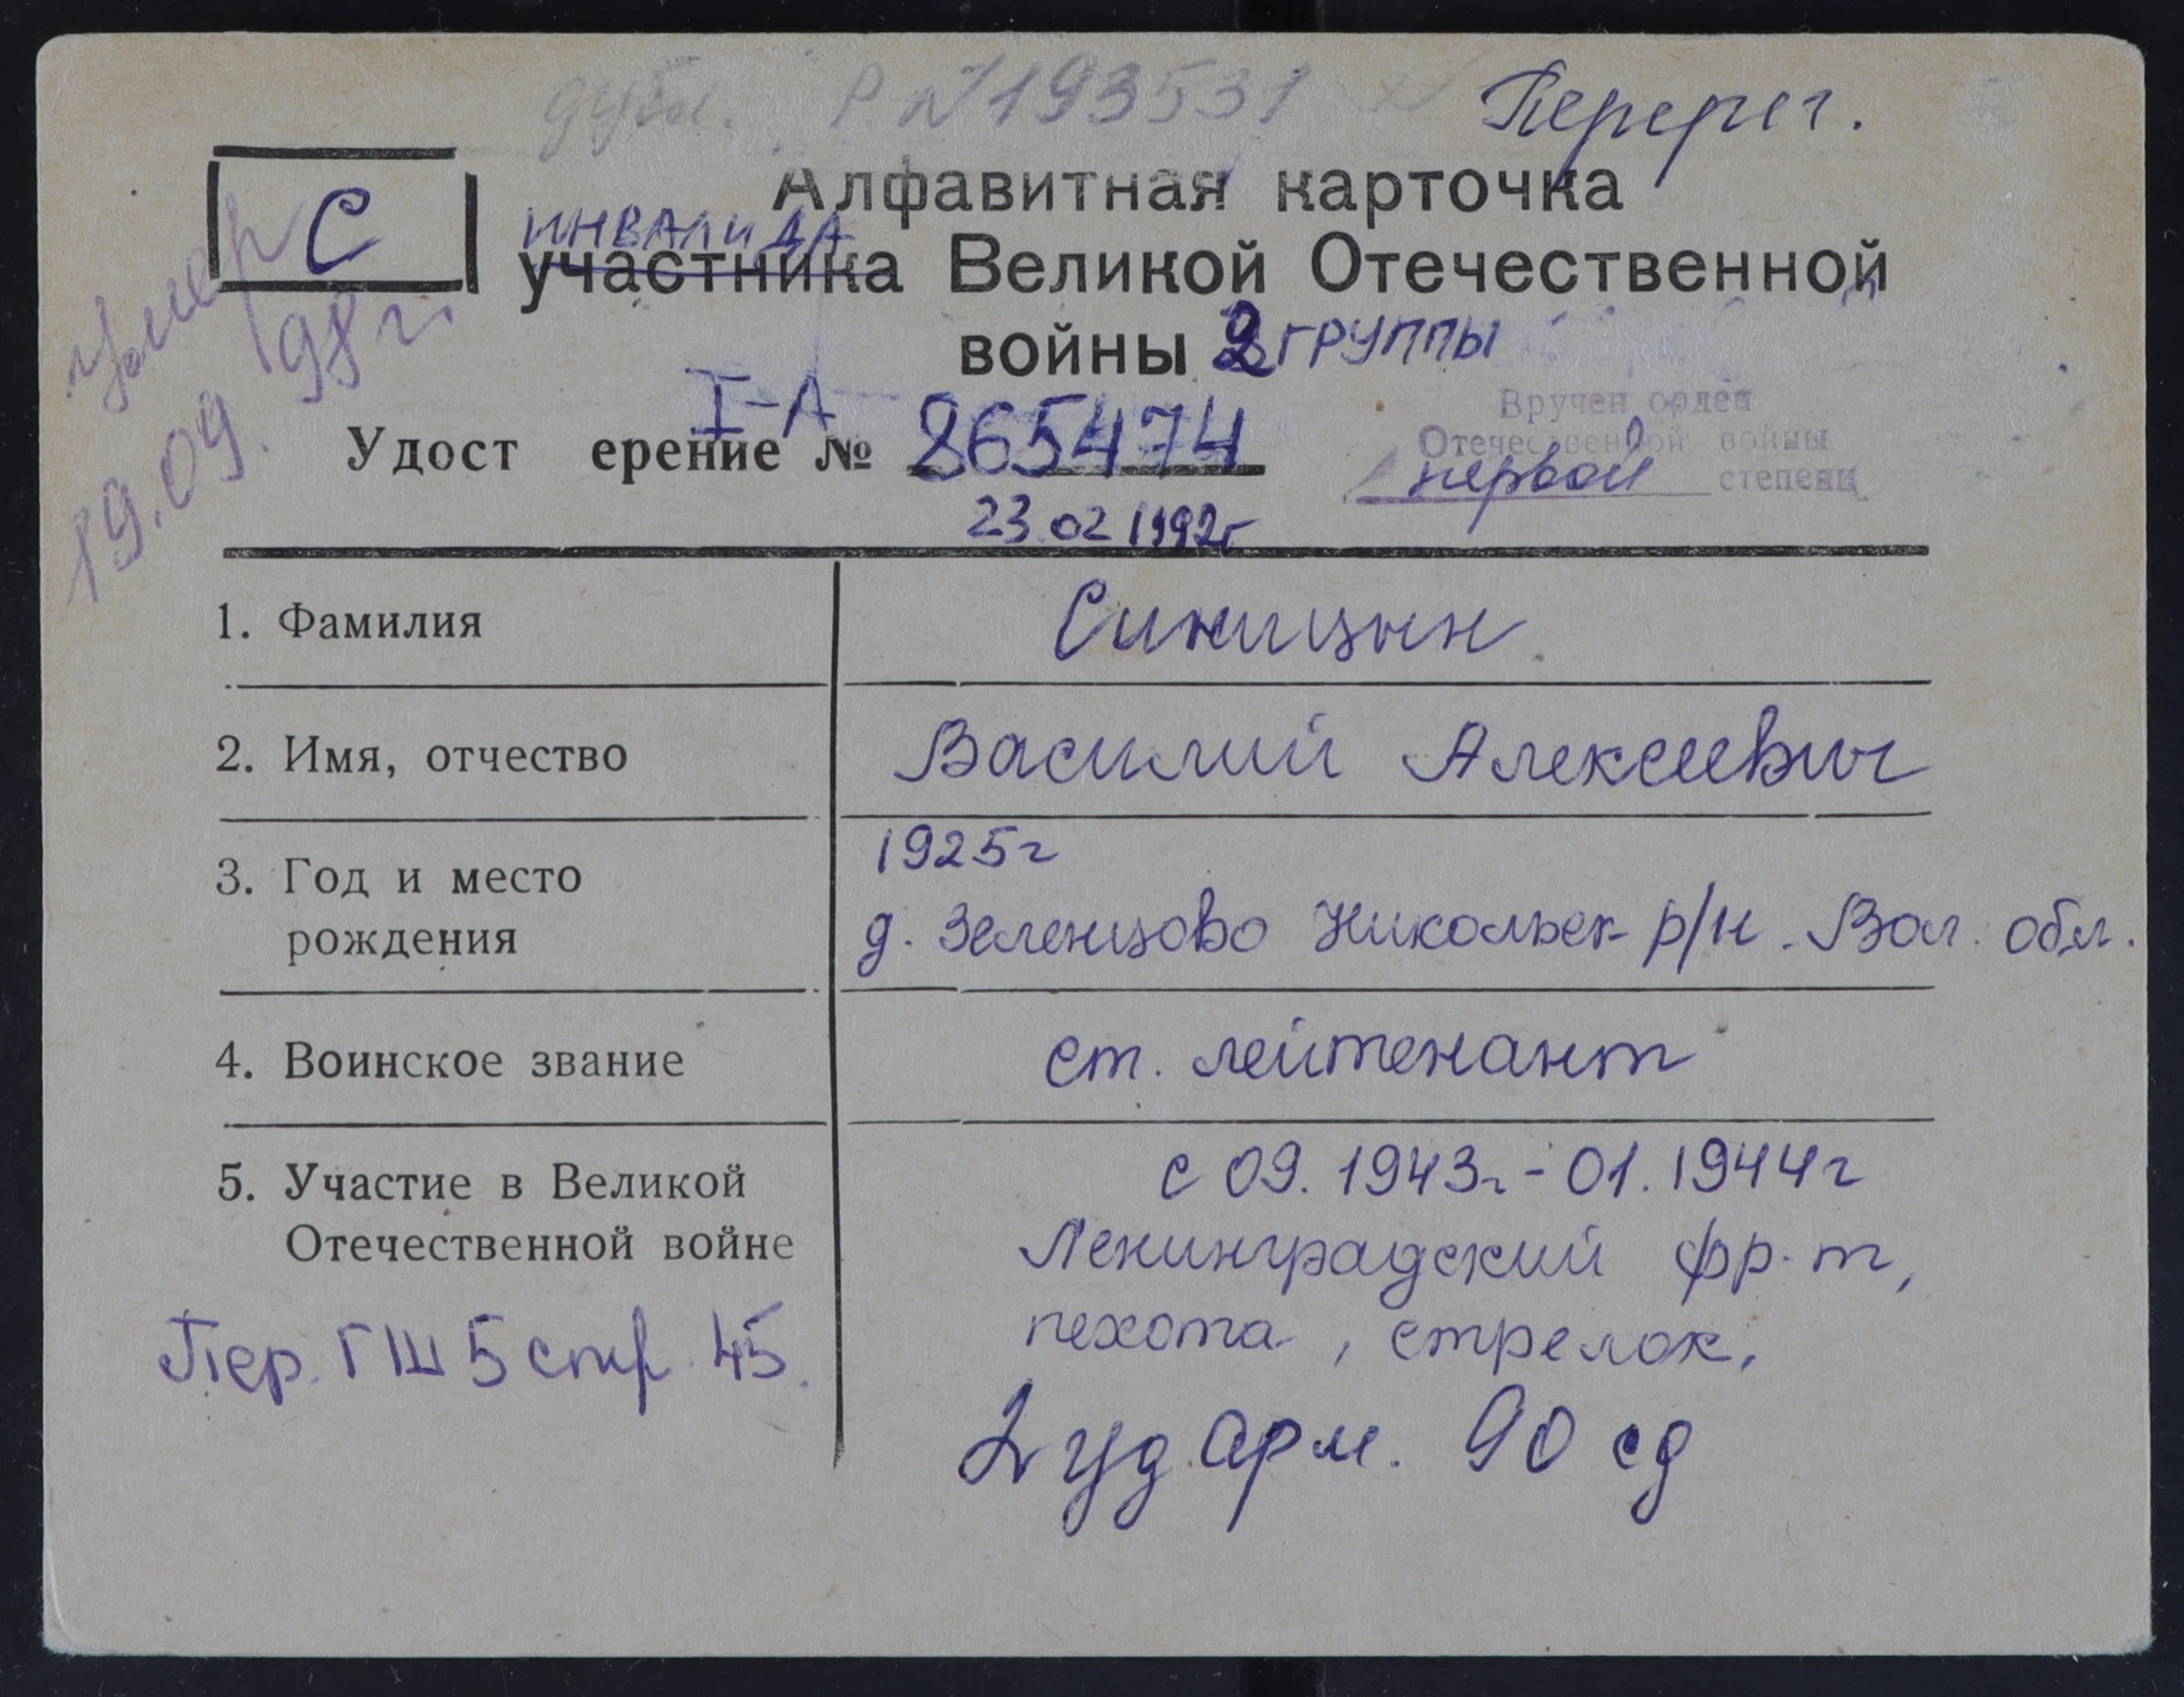 дубл. Р №193531 Перерег.
С
Алфавитная карточка
инвалида
участника Великой Отечественной
войны 2 группы
умер
19.09.98г.
I-А
Удост ерение № 865474
23.02 1992г
Вручен орден
Отечественной войны
первой степени
1. Фамилия Синицын
2. Имя, отчество Василий Алексеевич
3. Год и место 1925г
рождения д. Зеленцово Никольск р/н. Вол. обл.
4. Воинское звание ст. лейтенант
5. Участие в Великой с 09.1943г - 01.1944г
Отечественной войне Ленинградский фр-т,
пехота, стрелок,
Пер. ГШ 5 стр. 45.
2 уд. арм. 90 сд